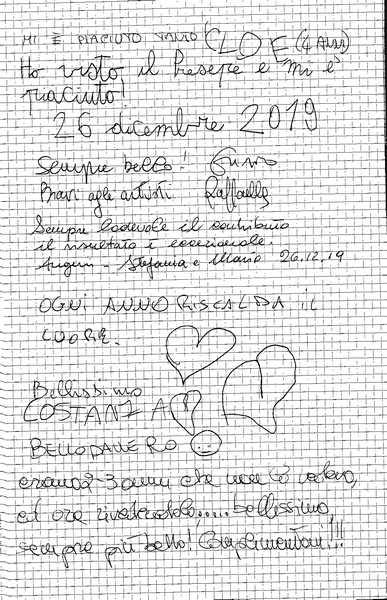 MI È PIACIUTO TANTO CLOE (4 ANNI)
Ho visto il Presepe e mi è
piaciuto!
26 dicembre 2019
Sempre bello!
Bravi agli artisti Raffaella
Sempre lodevole il contributo
il risultato è eccezionale.
Auguri - Stefania e Mario 26.12.19
OGNI ANNO RISCALDA IL
CUORE.
Bellissimo
COSTANZA
BELLO DAVVERO
2-3 anni che non lo vedevo,
ed ora rivedendolo..... bellissimo,
sempre più bello! Complimentoni!!!